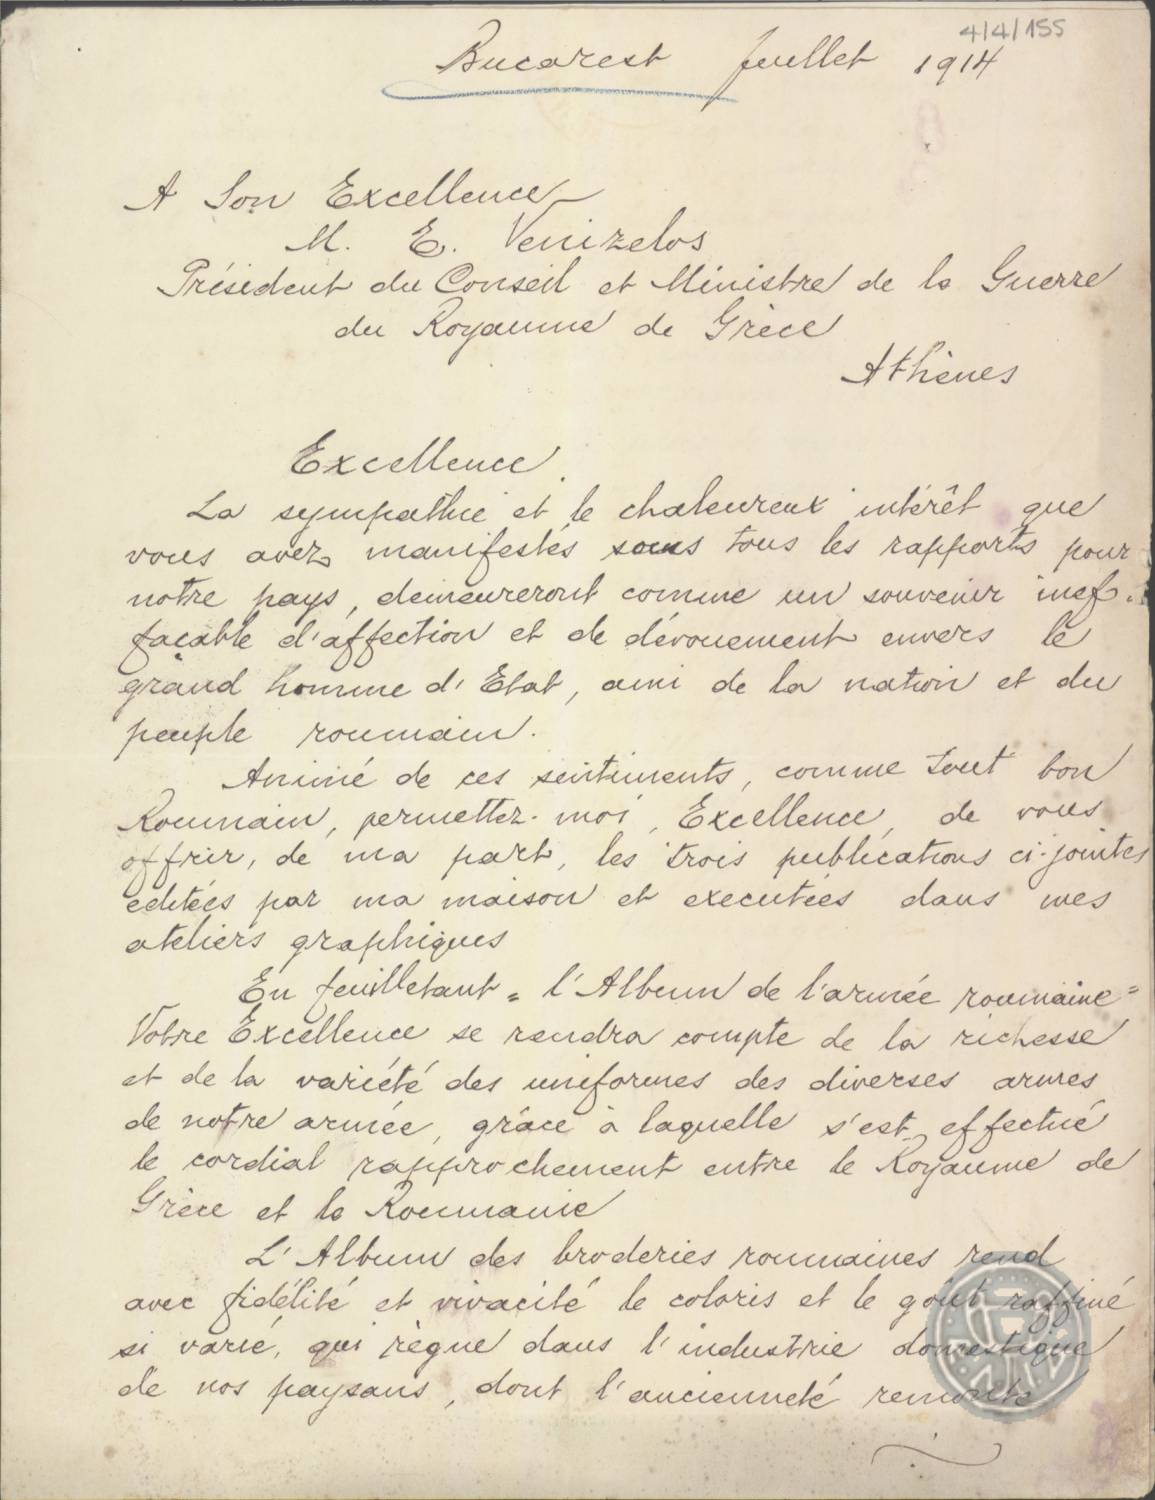 4/4/155
Bucarest Juillet 1914
A Son Excellence
M. E. Venizelos
Président du Conseil et Ministre de la Guerre
du Royaume de Grèce
Athènes
Excellence.
La sympathie et le chaleureux intérêt que
vous avez manifestés sous tous les rapports pour
notre pays, demeureront comme un souvenir inef-
façable d'affection et de dévouement envers le
grand homme d'Etat, ami de la nation et du
peuple roumain.
Animé de ces sentiments, comme tout bon
Roumain, permettez-moi, Excellence, de vous
offrir, de ma part, les trois publications ci-jointes
editées par ma maison et executées dans mes
ateliers graphiques
En feuilletant "l'Album de l'armée roumaine"
Votre Excellence se rendra compte de la richesse
et de la variété des uniformes des diverses armes
de notre armée, grâce à laquelle s'est effectué
le cordial rapprochement entre le Royaume de
Grèce et la Roumanie
L'Album des broderies roumaines rend
avec fidélité et vivacité le coloris et le goût raffiné
si varié, qui règne dans l'industrie domestique
de nos paysans, dont l'ancienneté remonte